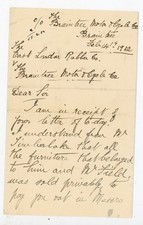 c/o The
Braintree Motor & Cycle Co
Braintree
Feb 14th 1902
The
East London Rubber Co
v The
Braintree Motor & Cycle Co
Dear Sir
I am in receipt of
your letter of to day
I understand from Mr
Timberlake that all
the furniture that belonged
to him and Mr Field
was sold privately to
pay you out in Messrs